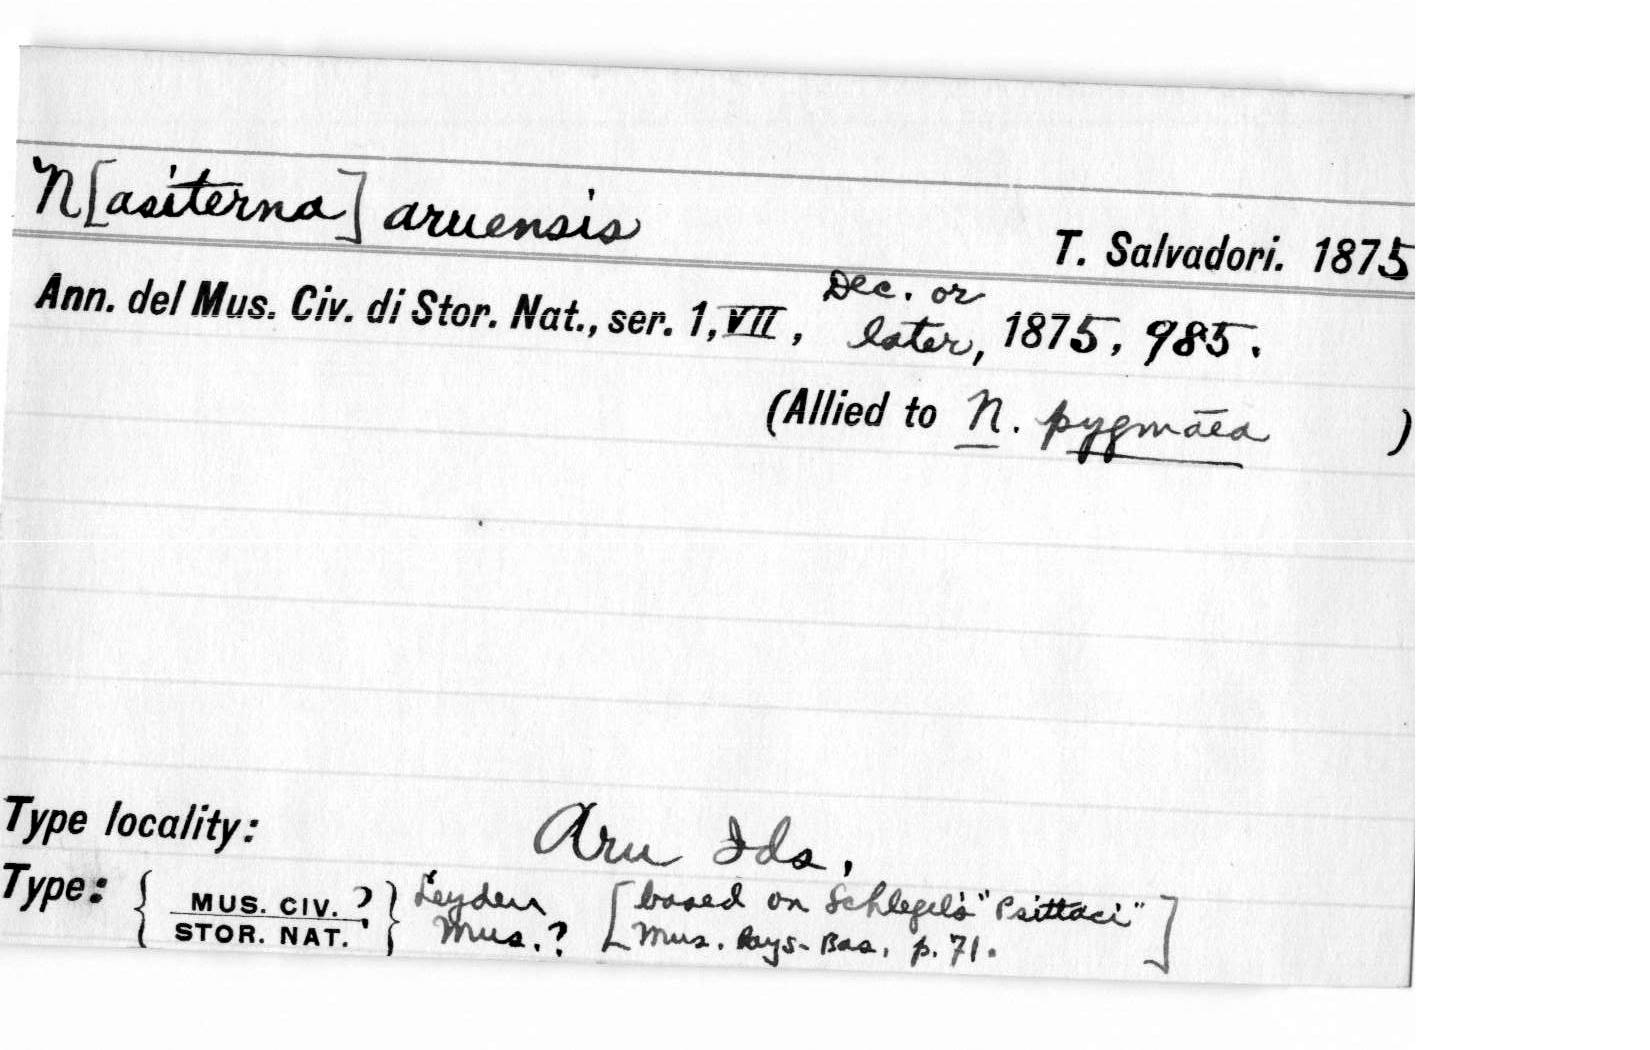 N[asiterna] aruensis
T. Salvadori. 1875
Ann. del Mus. Civ. di Stor. Nat., ser. 1, VII, Dec. or later, 1875, 985.
(Allied to N. pygmaea )
Type locality: Aru Ids,
Type: { MUS. CIV. STOR. NAT. ? } Leyden Mus.? [based on Schlegel's "Psittaci" Mus. Pays-Bas, p. 71.]